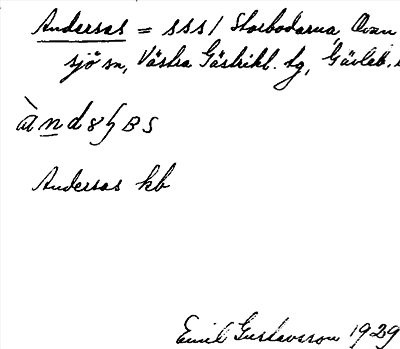 Andersas = sss/ Storbodarna, Ovan
sjö sn, Västra Gästrikl. hg, Gävleb.
ànd
Andersas kb
Emil Gustavsson 1929